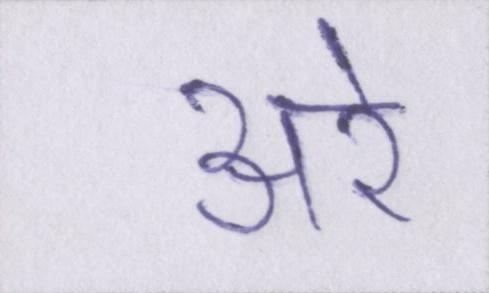 अरे